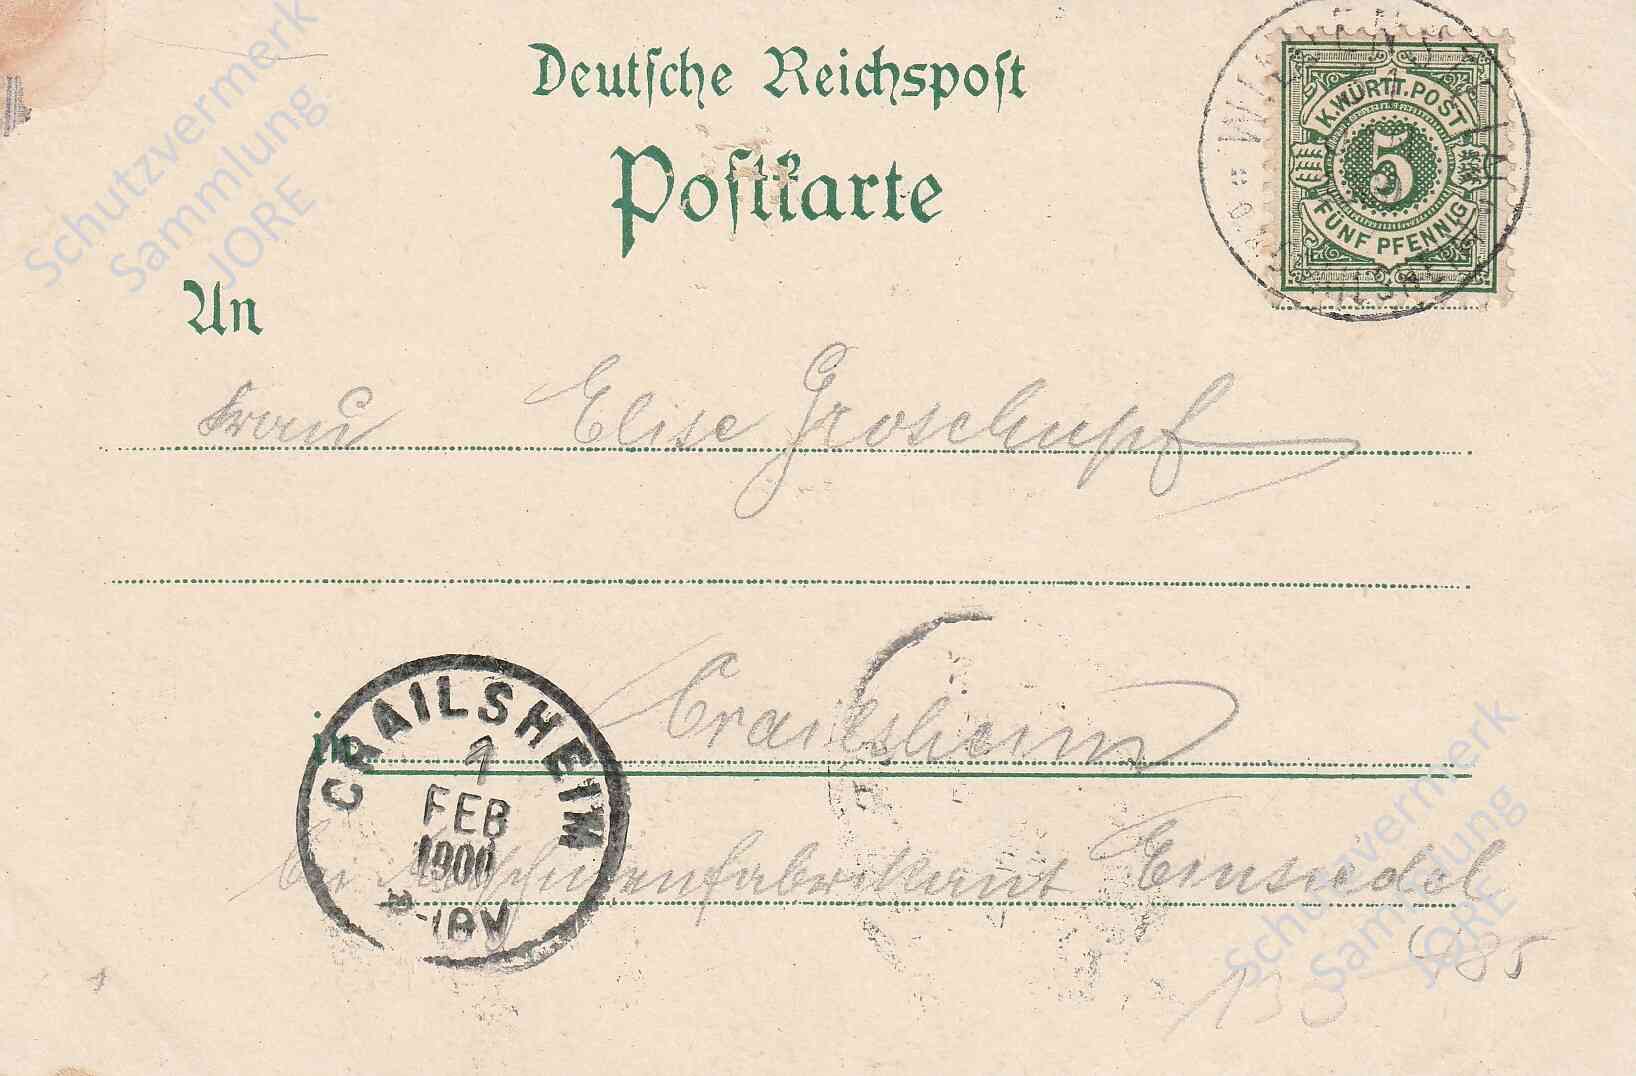 Deutsche Reichspost
Postkarte
K. WÜRTT. POST
5
FÜNF PFENNIG
An
Frau Elise Groschupf
in Crailsheim
bei Maschinenfabrikant Einsiedel
CRAILSHEIM
1
FEB
1900
Schutzvermerk
Sammlung
JORE
Schutzvermerk
Sammlung
JORE